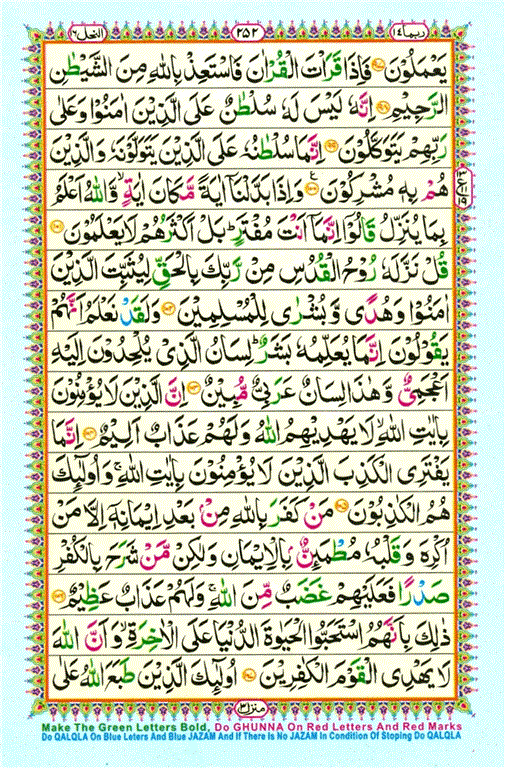 ربما ١٤
٢٥٢
النحل ١٦
يَعْمَلُوْنَ ﴿۹۷﴾ فَاِذَا قَرَاْتَ الْقُرْاٰنَ فَاسْتَعِذْ بِاللّٰهِ مِنَ الشَّيْطٰنِ
الرَّجِيْمِ ﴿۹۸﴾ اِنَّهٗ لَيْسَ لَهٗ سُلْطٰنٌ عَلَى الَّذِيْنَ اٰمَنُوْا وَعَلٰى
رَبِّهِمْ يَتَوَكَّلُوْنَ ﴿۹۹﴾ اِنَّمَا سُلْطٰنُهٗ عَلَى الَّذِيْنَ يَتَوَلَّوْنَهٗ وَالَّذِيْنَ
هُمْ بِهٖ مُشْرِكُوْنَ ﴿۱۰۰﴾ وَاِذَا بَدَّلْنَاۤ اٰيَةً مَّكَانَ اٰيَةٍ ۙ وَّاللّٰهُ اَعْلَمُ
بِمَا يُنَزِّلُ قَالُوْۤا اِنَّمَاۤ اَنْتَ مُفْتَرٍ ؕ بَلْ اَكْثَرُهُمْ لَا يَعْلَمُوْنَ ﴿۱۰۱﴾
قُلْ نَزَّلَهٗ رُوْحُ الْقُدُسِ مِنْ رَّبِّكَ بِالْحَقِّ لِيُثَبِّتَ الَّذِيْنَ
اٰمَنُوْا وَهُدًى وَّبُشْرٰى لِلْمُسْلِمِيْنَ ﴿۱۰۲﴾ وَلَقَدْ نَعْلَمُ اَنَّهُمْ
يَقُوْلُوْنَ اِنَّمَا يُعَلِّمُهٗ بَشَرٌ ؕ لِسَانُ الَّذِيْ يُلْحِدُوْنَ اِلَيْهِ
اَعْجَمِيٌّ وَّهٰذَا لِسَانٌ عَرَبِيٌّ مُّبِيْنٌ ﴿۱۰۳﴾ اِنَّ الَّذِيْنَ لَا يُؤْمِنُوْنَ
بِاٰيٰتِ اللّٰهِ ۙ لَا يَهْدِيْهِمُ اللّٰهُ وَلَهُمْ عَذَابٌ اَلِيْمٌ ﴿۱۰۴﴾ اِنَّمَا
يَفْتَرِى الْكَذِبَ الَّذِيْنَ لَا يُؤْمِنُوْنَ بِاٰيٰتِ اللّٰهِ ۚ وَاُولٰٓئِكَ
هُمُ الْكٰذِبُوْنَ ﴿۱۰۵﴾ مَنْ كَفَرَ بِاللّٰهِ مِنْۢ بَعْدِ اِيْمَانِهٖۤ اِلَّا مَنْ
اُكْرِهَ وَقَلْبُهٗ مُطْمَئِنٌّۢ بِالْاِيْمَانِ وَلٰكِنْ مَّنْ شَرَحَ بِالْكُفْرِ
صَدْرًا فَعَلَيْهِمْ غَضَبٌ مِّنَ اللّٰهِ ۚ وَلَهُمْ عَذَابٌ عَظِيْمٌ ﴿۱۰۶﴾
ذٰلِكَ بِاَنَّهُمُ اسْتَحَبُّوا الْحَيٰوةَ الدُّنْيَا عَلَى الْاٰخِرَةِ ۙ وَاَنَّ اللّٰهَ
لَا يَهْدِى الْقَوْمَ الْكٰفِرِيْنَ ﴿۱۰۷﴾ اُولٰٓئِكَ الَّذِيْنَ طَبَعَ اللّٰهُ عَلٰى
منزل ٣
Make The Green Letters Bold, Do GHUNNA On Red Letters And Red Marks
Do QALQLA On Blue Leters And Blue JAZAM And If There Is No JAZAM In Condition Of Stoping Do QALQLA